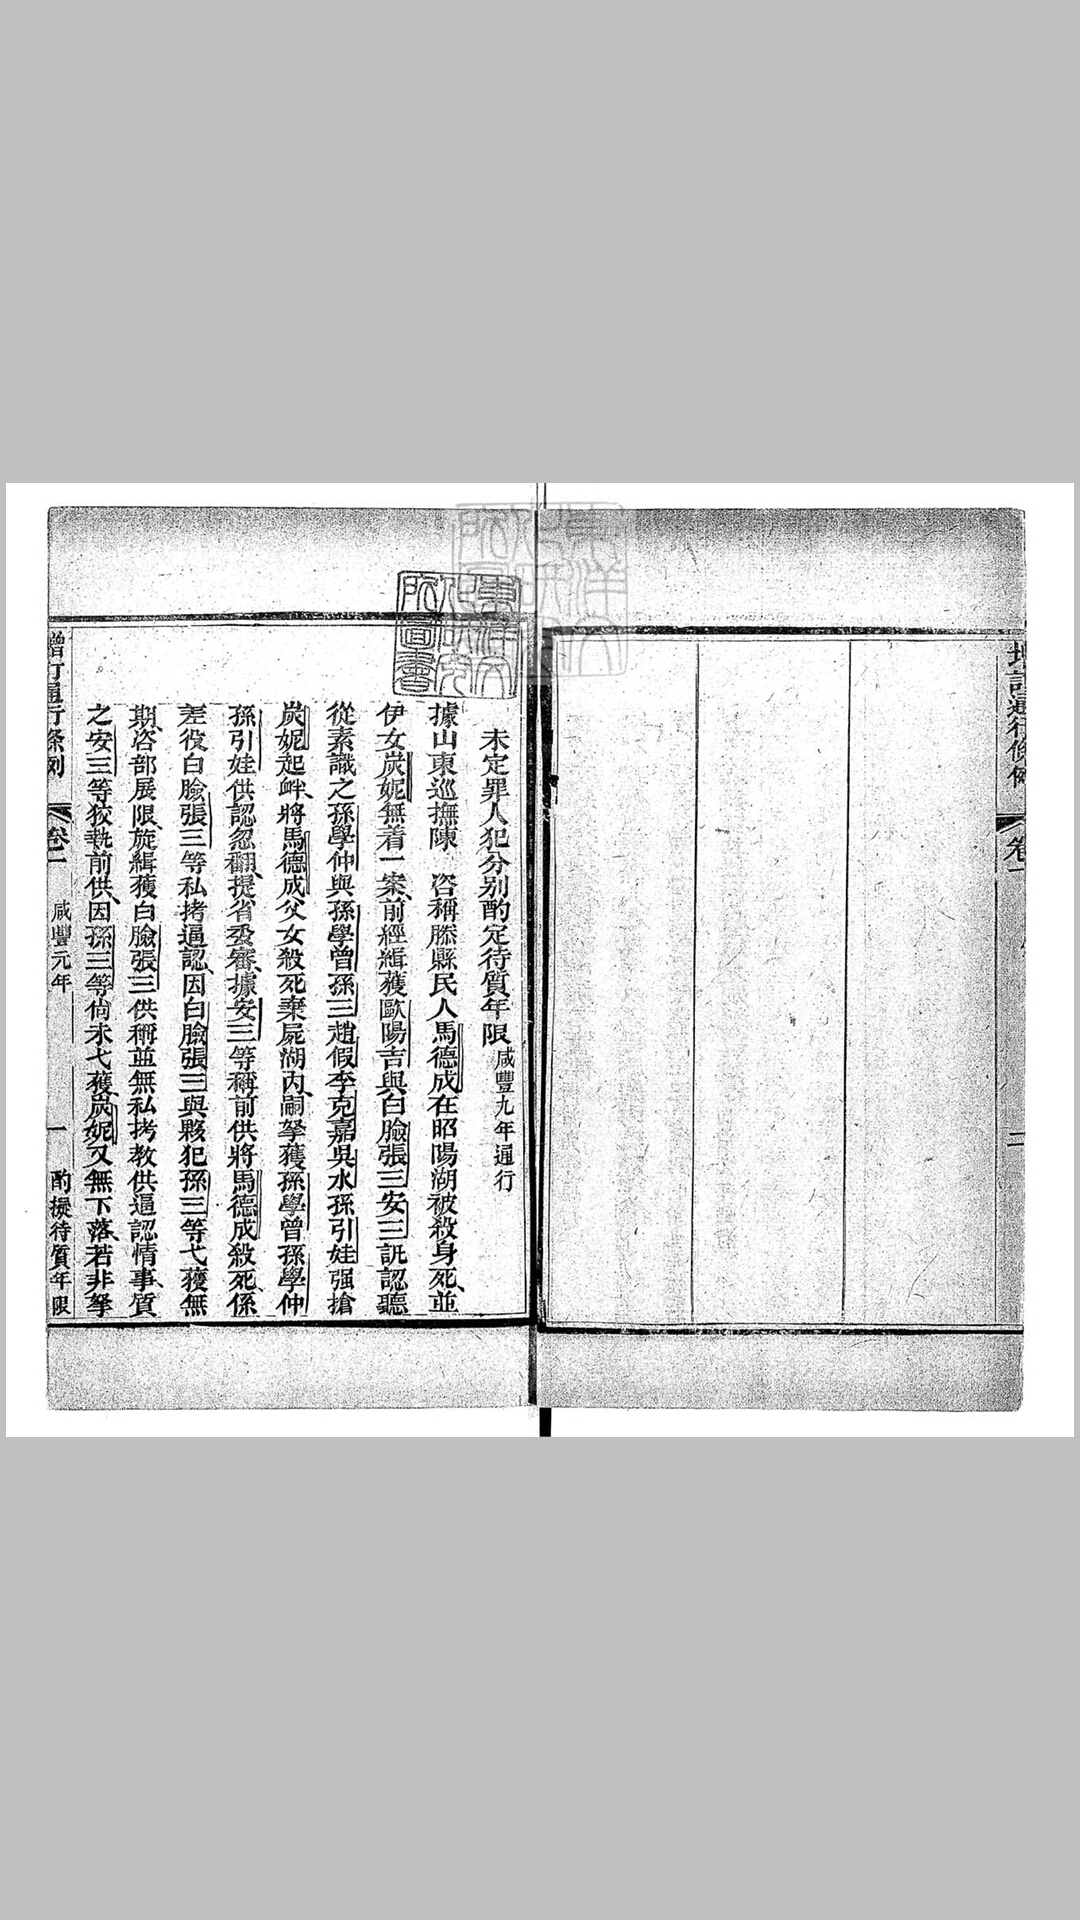 增訂通行條例
卷一
二
未定罪人犯分别酌定待質年限 咸豐九年通行
據山東巡撫陳 咨稱滕縣民人馬德成在昭陽湖被殺身死並
伊女炭妮無着一案前經緝獲歐陽吉與白臉張三安三訊認聽
從素識之孫學仲與孫學曾孫三趙假李克嘉吳水孫引娃强搶
炭妮起衅將馬德成父女殺死棄屍湖內嗣拏獲孫學曾孫學仲
孫引娃供認忽翻提省委審據安三等稱前供將馬德成殺死係
差役白臉張三等私拷逼認因白臉張三與夥犯孫三等弋獲無
期咨部展限旋緝獲白臉張三供稱並無私拷教供逼認情事質
之安三等狡執前供因孫三等尙未弋獲炭妮又無下落若非拏
增訂通行條例
卷一
咸豐元年
一
酌提待質年限
東洋文化研究所圖書